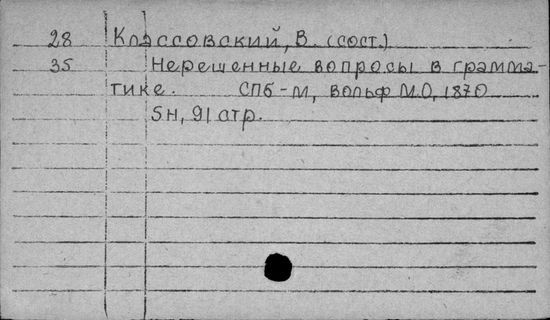 28 Классовский, В. (сост.)
35 Нерешенные вопросы в грамма-
тике. СПб-М, Вольф М.О, 1870
5н, 91 стр.